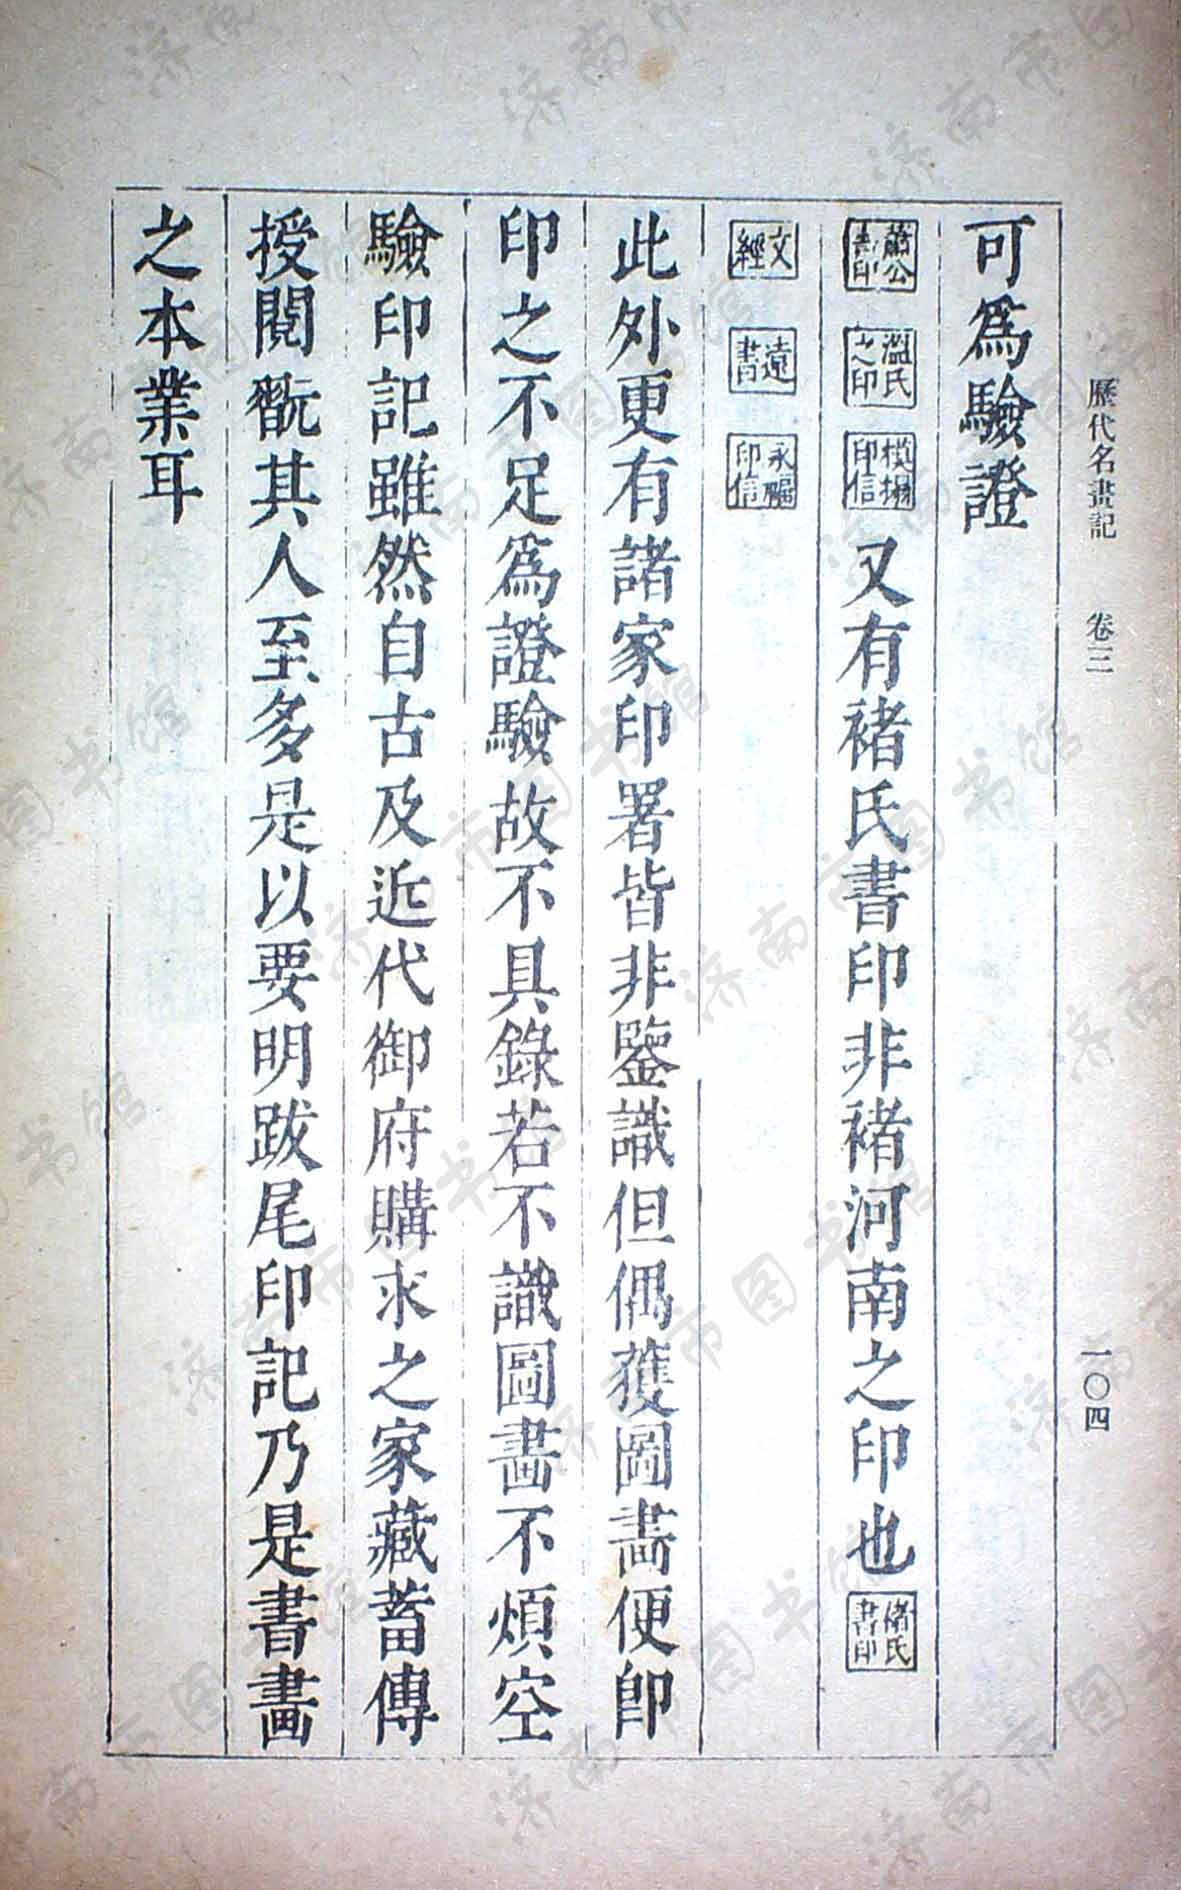 歷代名畫記 卷三 一〇四
可爲驗證
蕭公書印 溫氏之印 模搨印信 又有褚氏書印非褚河南之印也 褚氏書印
文經 遠書 永印信
此外更有諸家印署皆非鑒識但偶獲圖畵便卽
印之不足爲證驗故不具錄若不識圖畵不煩空
驗印記雖然自古及近代御府購求之家藏蓄傳
授閱翫其人至多是以要明跋尾印記乃是書畵
之本業耳
济南市图书馆